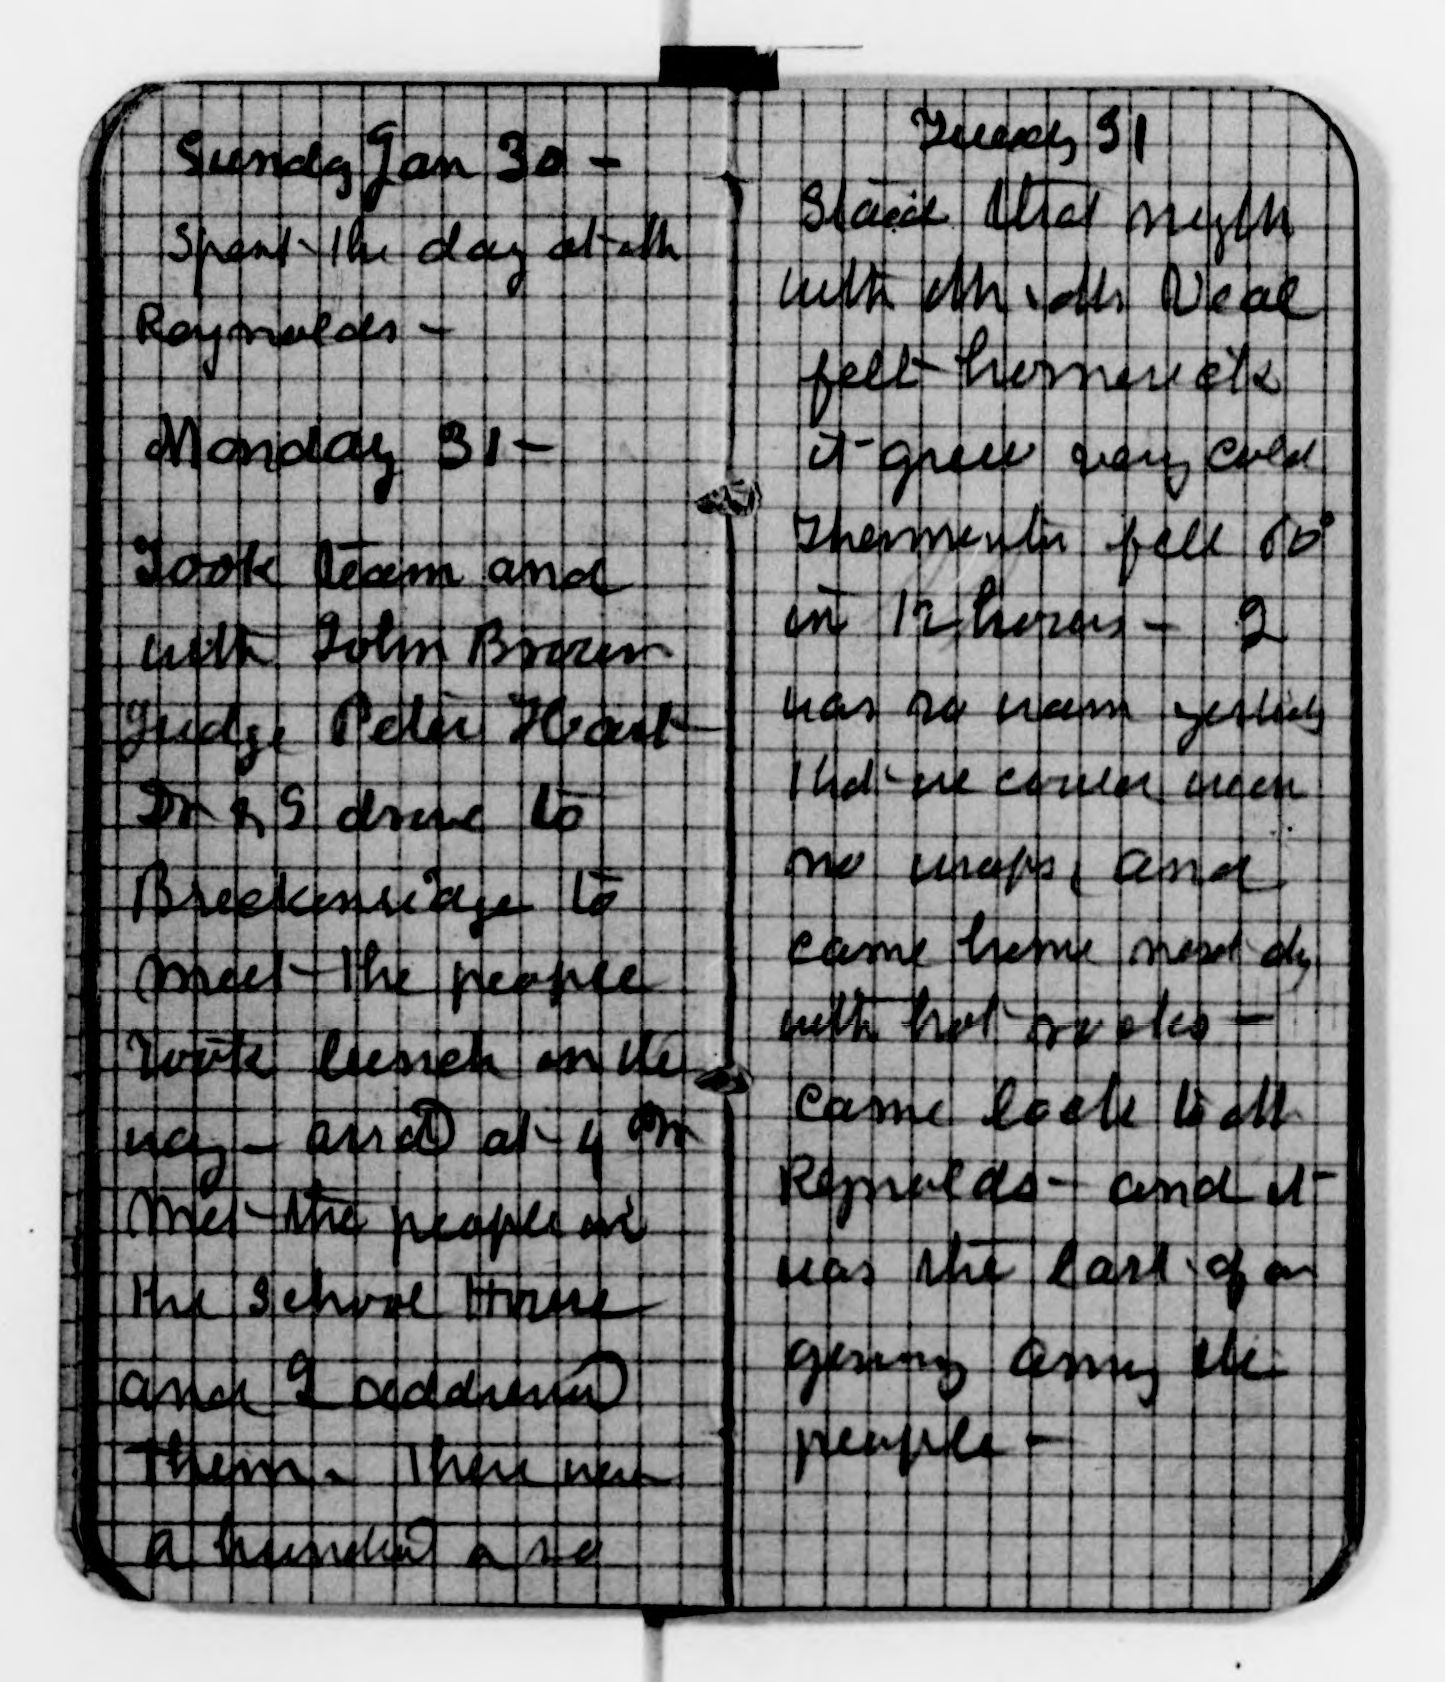 Sunday Jan 30 -
Spent the day at Mr
Reynolds -
Monday 31 -
Took team and
with John Brown
Judge Peter Hart
Dr & I drove to
Breckenridge to
meet the people
Took lunch on the
way - and at 4 PM
Met the people in
the School House
and I addressed
them. There were
a hundred or so
Tuesday 31
Staid that night
with Mr & Mrs Veal
felt homesick
it grew very cold
Thermometer fell 60°
in 12 hours - I
was so warm yesterday
that we could wear
no wraps, and
came home next day
with hot rocks -
came back to Mr
Reynolds - and it
was the last of our
going among the
people -